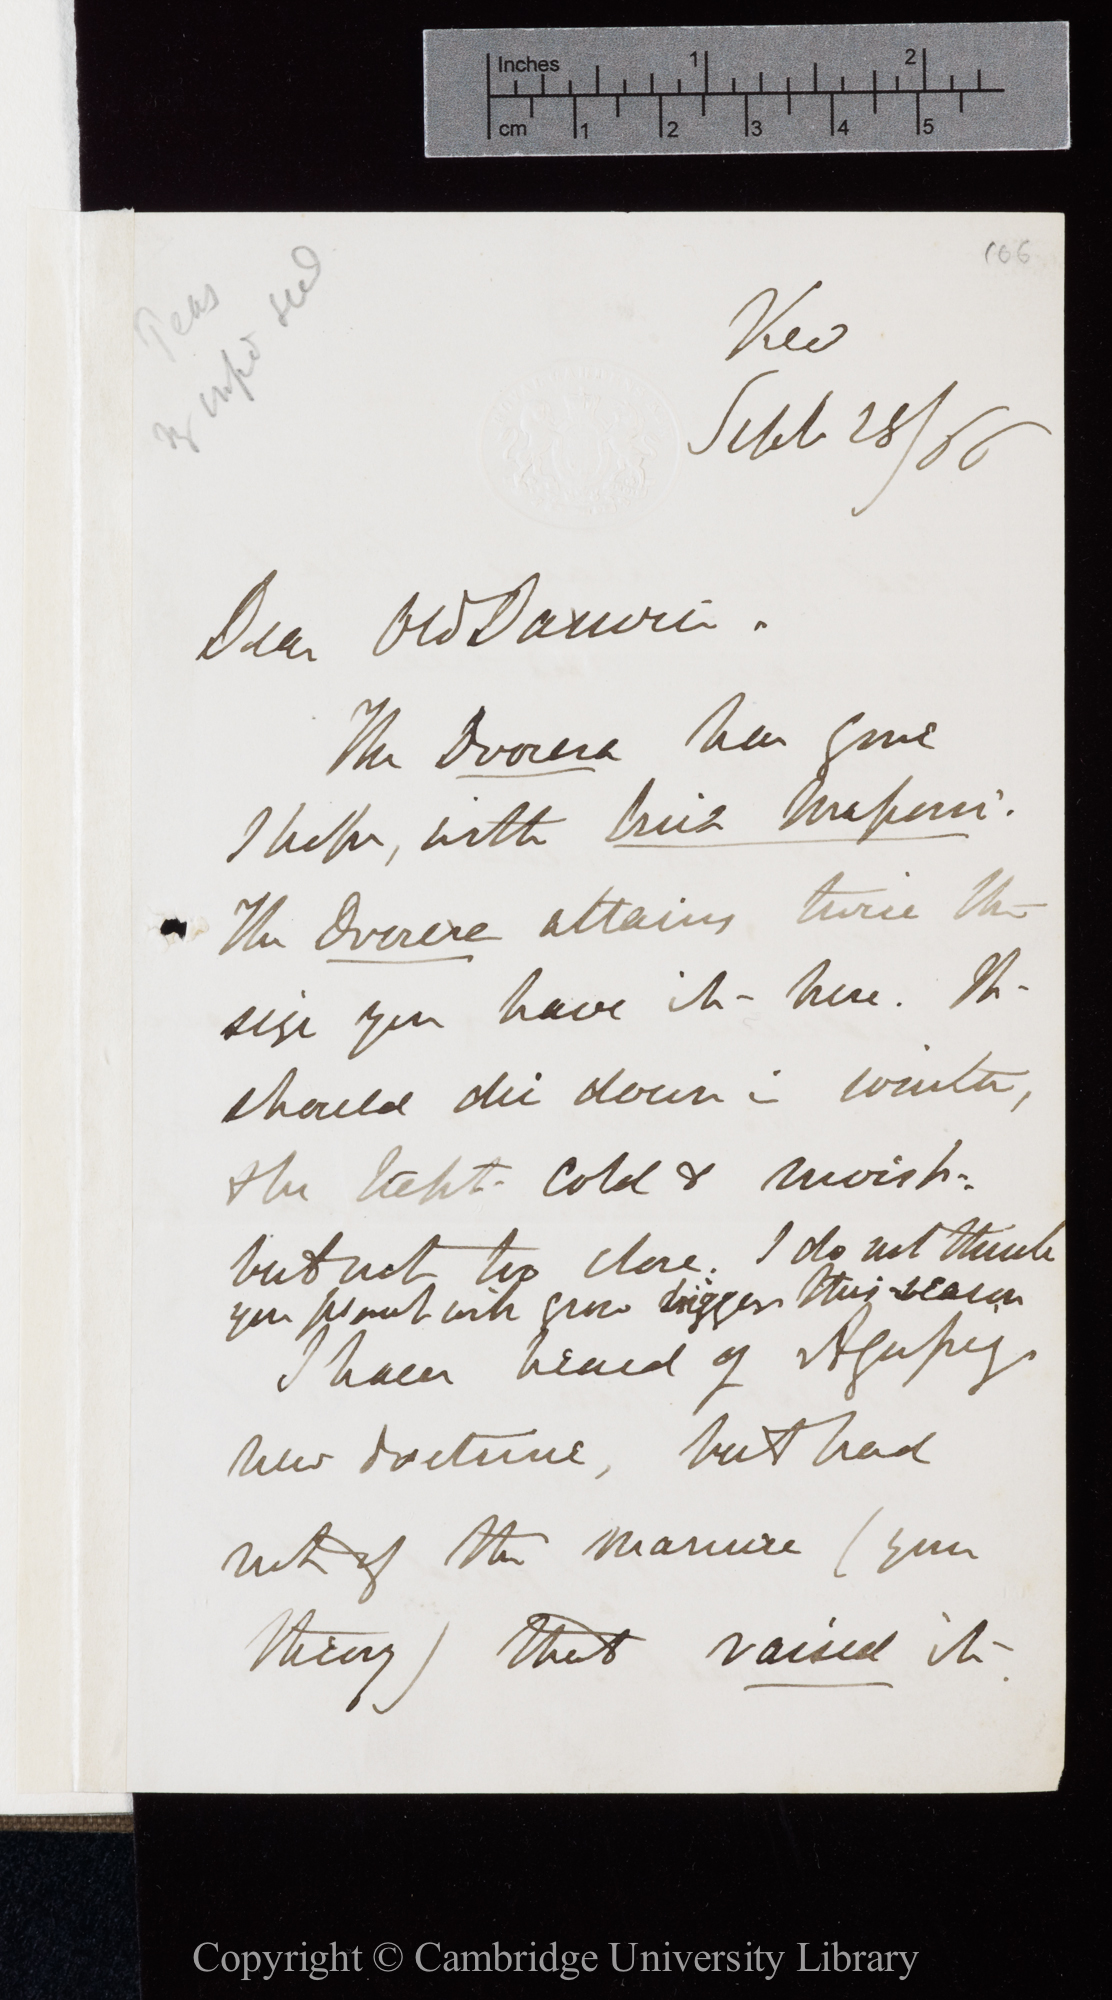 Inches 1 2
cm 1 2 3 4 5
106
Peas
seed
Kew
Septr 28/66
Dear Old Darwin.
The Drosera has gone
I hope, with Cruiz
The Drosera attains twice the
size you have it here. It
should die down in winter,
& be kept cold & moist.
but not too close. I do not think
your plant will grow bigger this season
I have heard of Agassiz
new doctrine, but had
not of the manure (your
theory) that raised it.
Copyright © Cambridge University Library